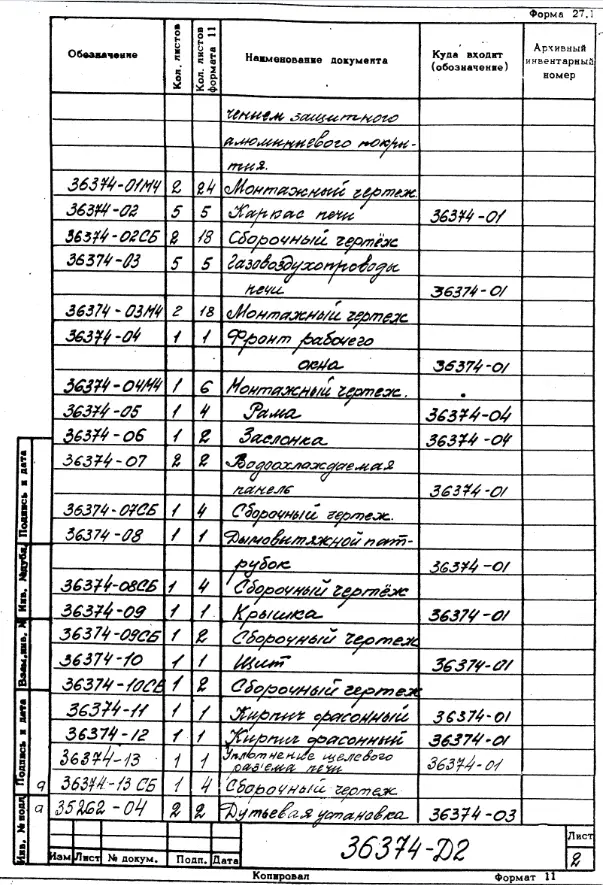 Форма 27.1
Обозначение Кол. листов Кол. листов формата 11 Наименование документа Куда входит (обозначение) Архивный инвентарный номер
чением защитного
алюминиевого покры-
тия.
36374-01МЧ 2 24 Монтажный чертеж.
36374-02 5 5 Каркас печи 36374-01
36374-02СБ 2 18 Сборочный чертёж
36374-03 5 5 Газовоздухопроводы
печи 36374-01
36374-03МЧ 2 18 Монтажный чертеж
36374-04 1 1 Фронт рабочего
окна 36374-01
36374-04МЧ 1 6 Монтажный чертеж.
36374-05 1 4 Рама 36374-04
36374-06 1 2 Заслонка 36374-04
36374-07 2 2 Водоохлаждаемая
панель 36374-01
36374-07СБ 1 4 Сборочный чертеж.
36374-08 1 1 Дымовытяжной пат-
рубок 36374-01
36374-08СБ 1 4 Сборочный чертёж
36374-09 1 1 Крышка 36374-01
36374-09СБ 1 2 Сборочный чертеж
36374-10 1 1 Щит 36374-01
36374-10СБ 1 2 Сборочный чертеж
36374-11 1 1 Кирпич фасонный 36374-01
36374-12 1 1 Кирпич фасонный 36374-01
36374-13 1 1 Уплотнение щелевого
разъема печи 36374-01
а 36374-13 СБ 1 4 Сборочный чертеж
а 35262-04 2 2 Дутьевая установка 36374-03
Подпись и дата
Инв. №дубл.
Взам.инв. №
Подпись и дата
Инв. № подл.
36374-Д2
Лист
2
Изм Лист № докум. Подп. Дата
Копировал Формат 11